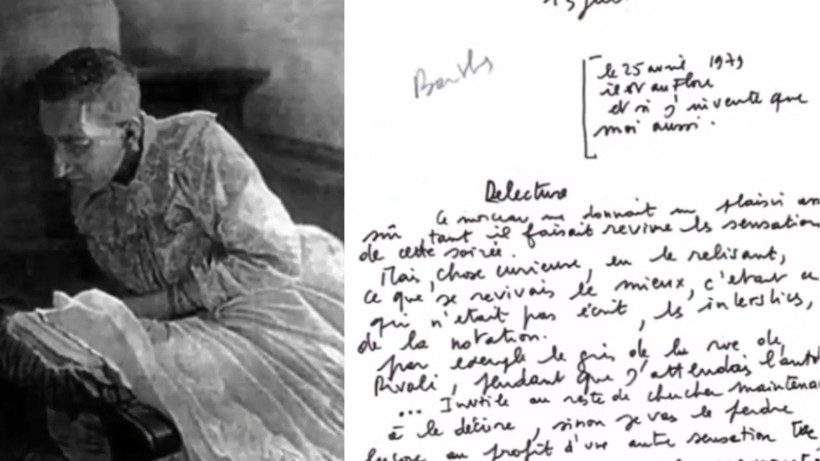 Barthes
le 25 avril 1979
il est au Flore
et si j'invente que
moi aussi.
Délecture
Ce morceau me donnait un plaisir
sûr tant il faisait revivre les sensations
de cette soirée.
Mais, chose curieuse, en le relisant,
ce que je revivais le mieux, c'était ce
qui n'était pas écrit, les interstices,
de la notation.
par exemple le gris de la rue de
Rivoli, pendant que j'attendais l'auto
... Inutile au reste de chercher maintenant
à le décrire, sinon je vas le perdre
encore au profit d'une autre sensation